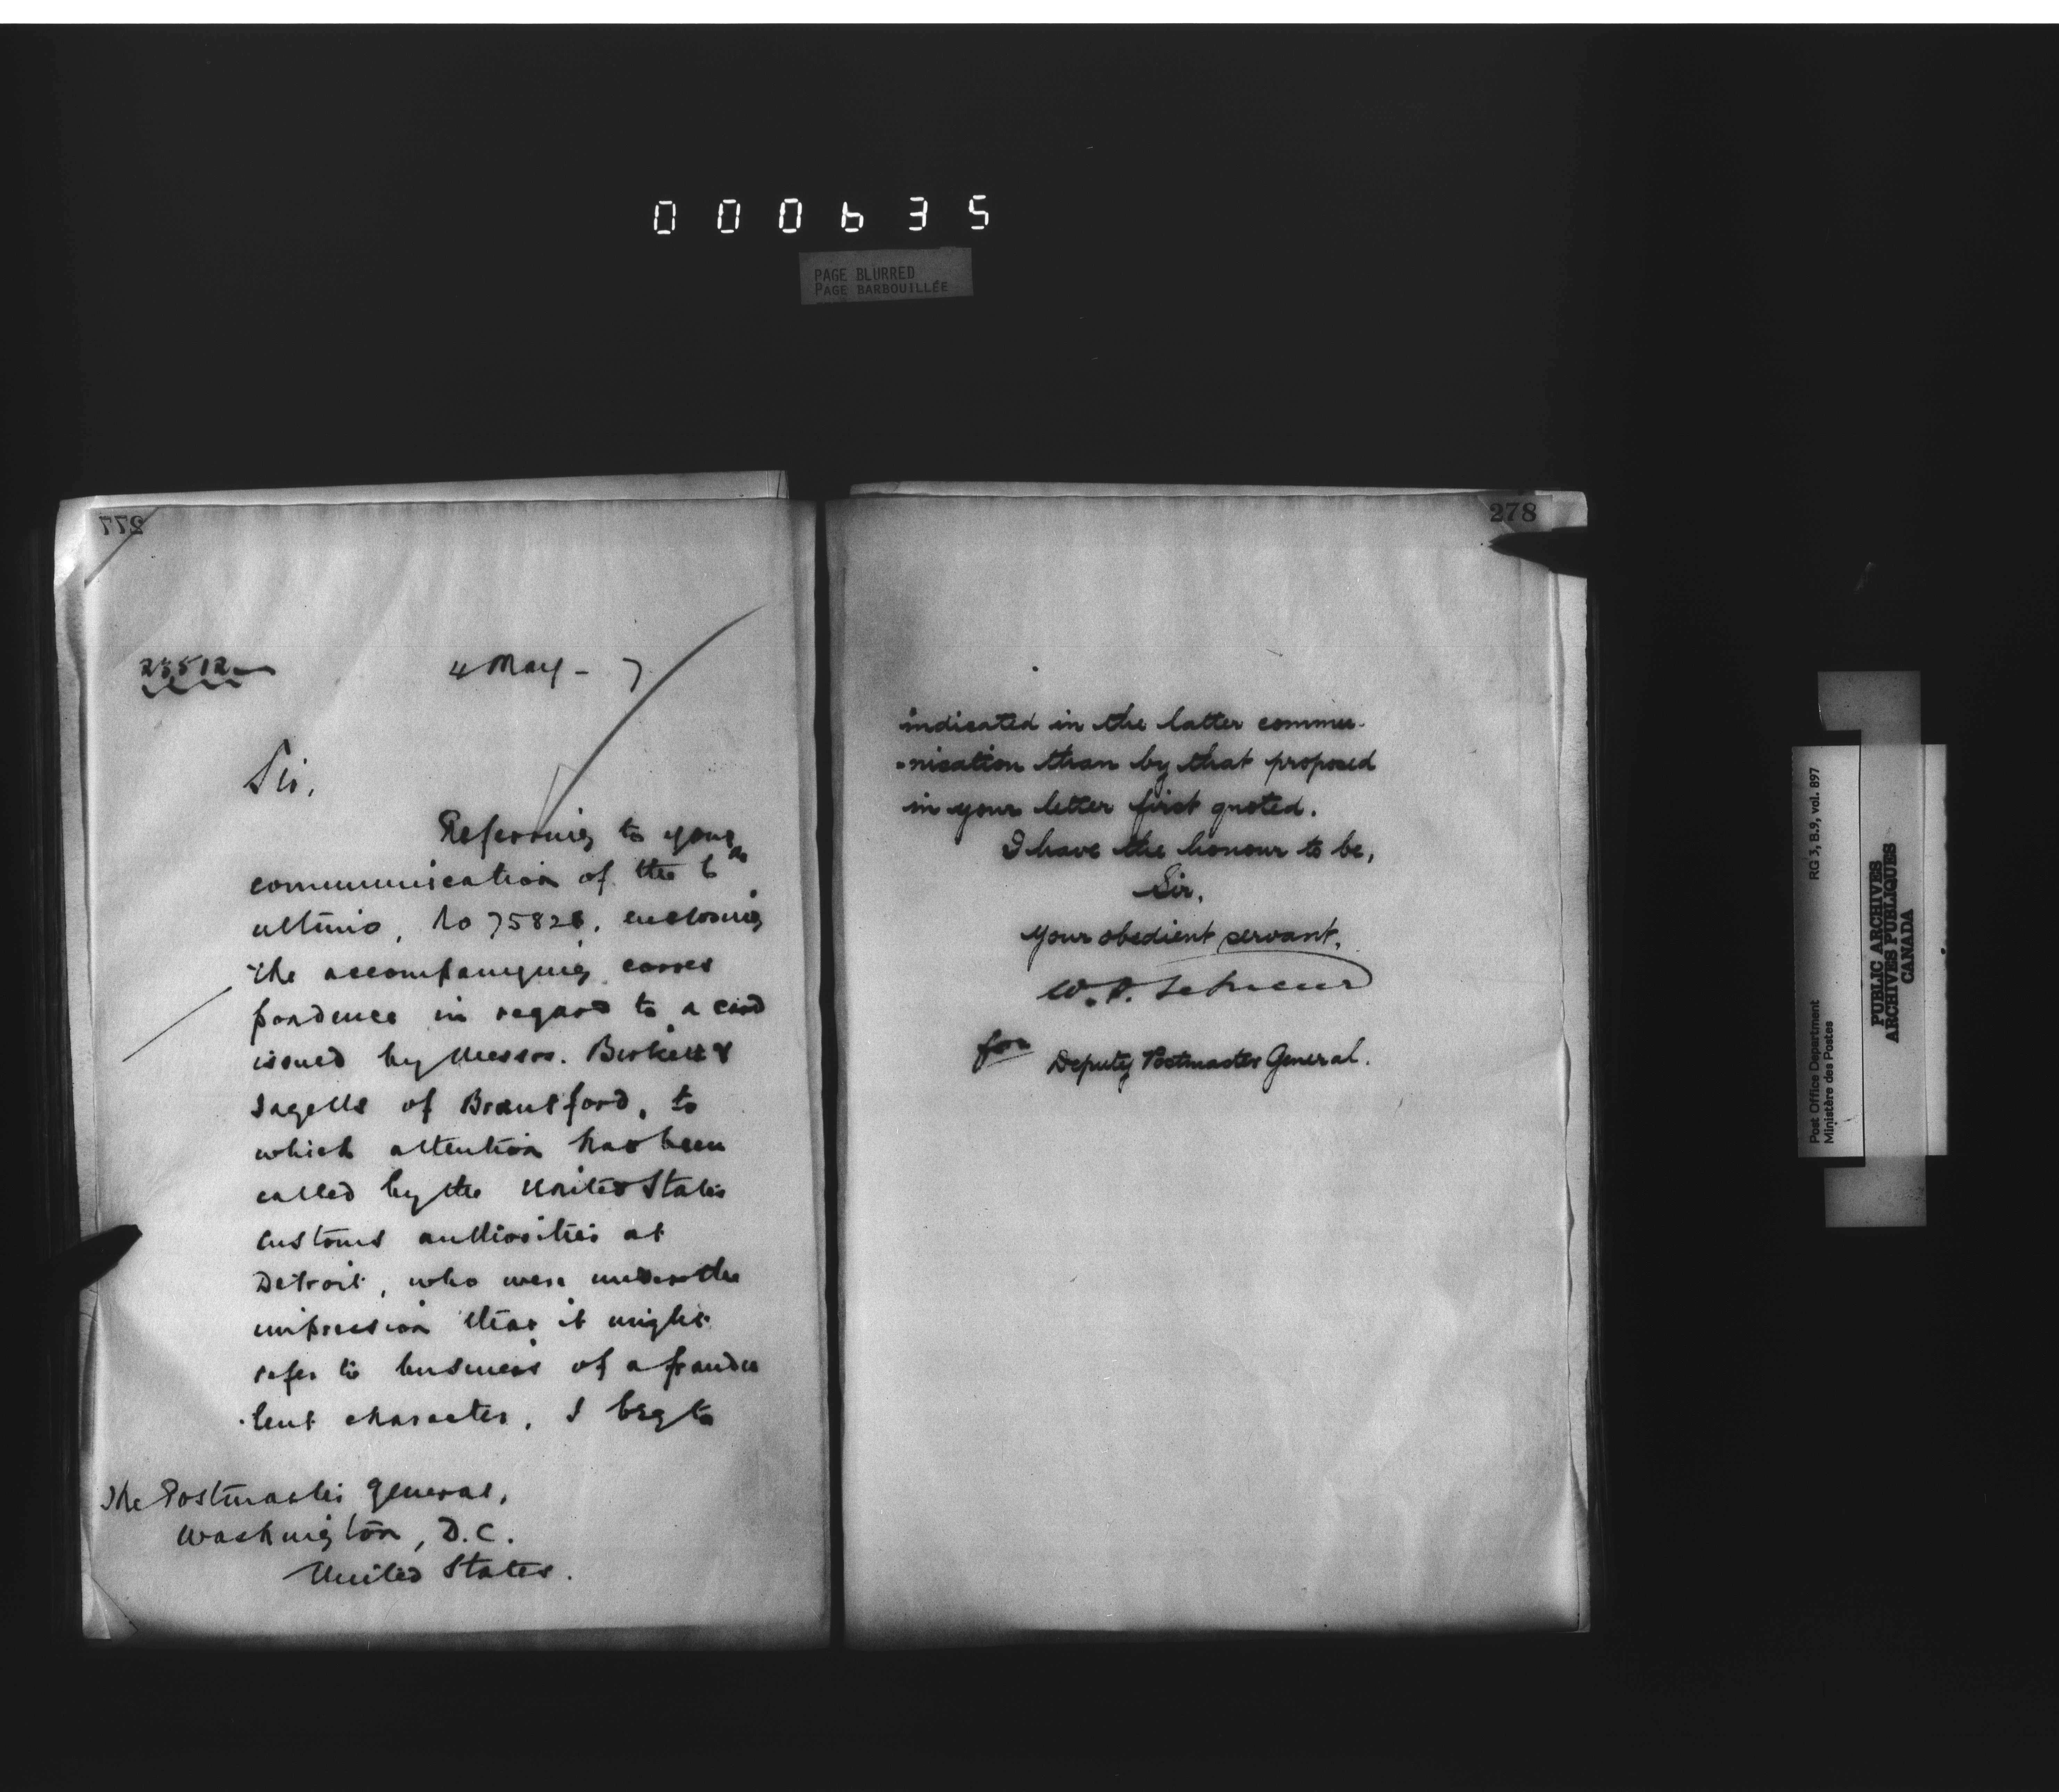 000635
PAGE BLURRED
PAGE BARBOUILLÉE
277
23512
4 May - 7
Sir,
Referring to your
communication of the 6th
ultimo, No 75828, enclosing
the accompanying corres
pondence in regard to a card
issued by Messrs. Birkett &
of Brantford, to
which attention has been
called by the United States
Customs authorities at
Detroit, who were under the
impression that it might
refer to business of a fraudu
-lent character, I beg to
The Postmaster General,
Washington, D.C.
United States.
278
indicated in the latter commu-
-nication than by that proposed
in your letter first quoted.
I have the honour to be,
Sir,
Your obedient servant,
W. J.
for Deputy Postmaster General.
Post Office Department RG 3, B.9, vol. 897
Ministère des Postes
PUBLIC ARCHIVES
ARCHIVES PUBLIQUES
CANADA